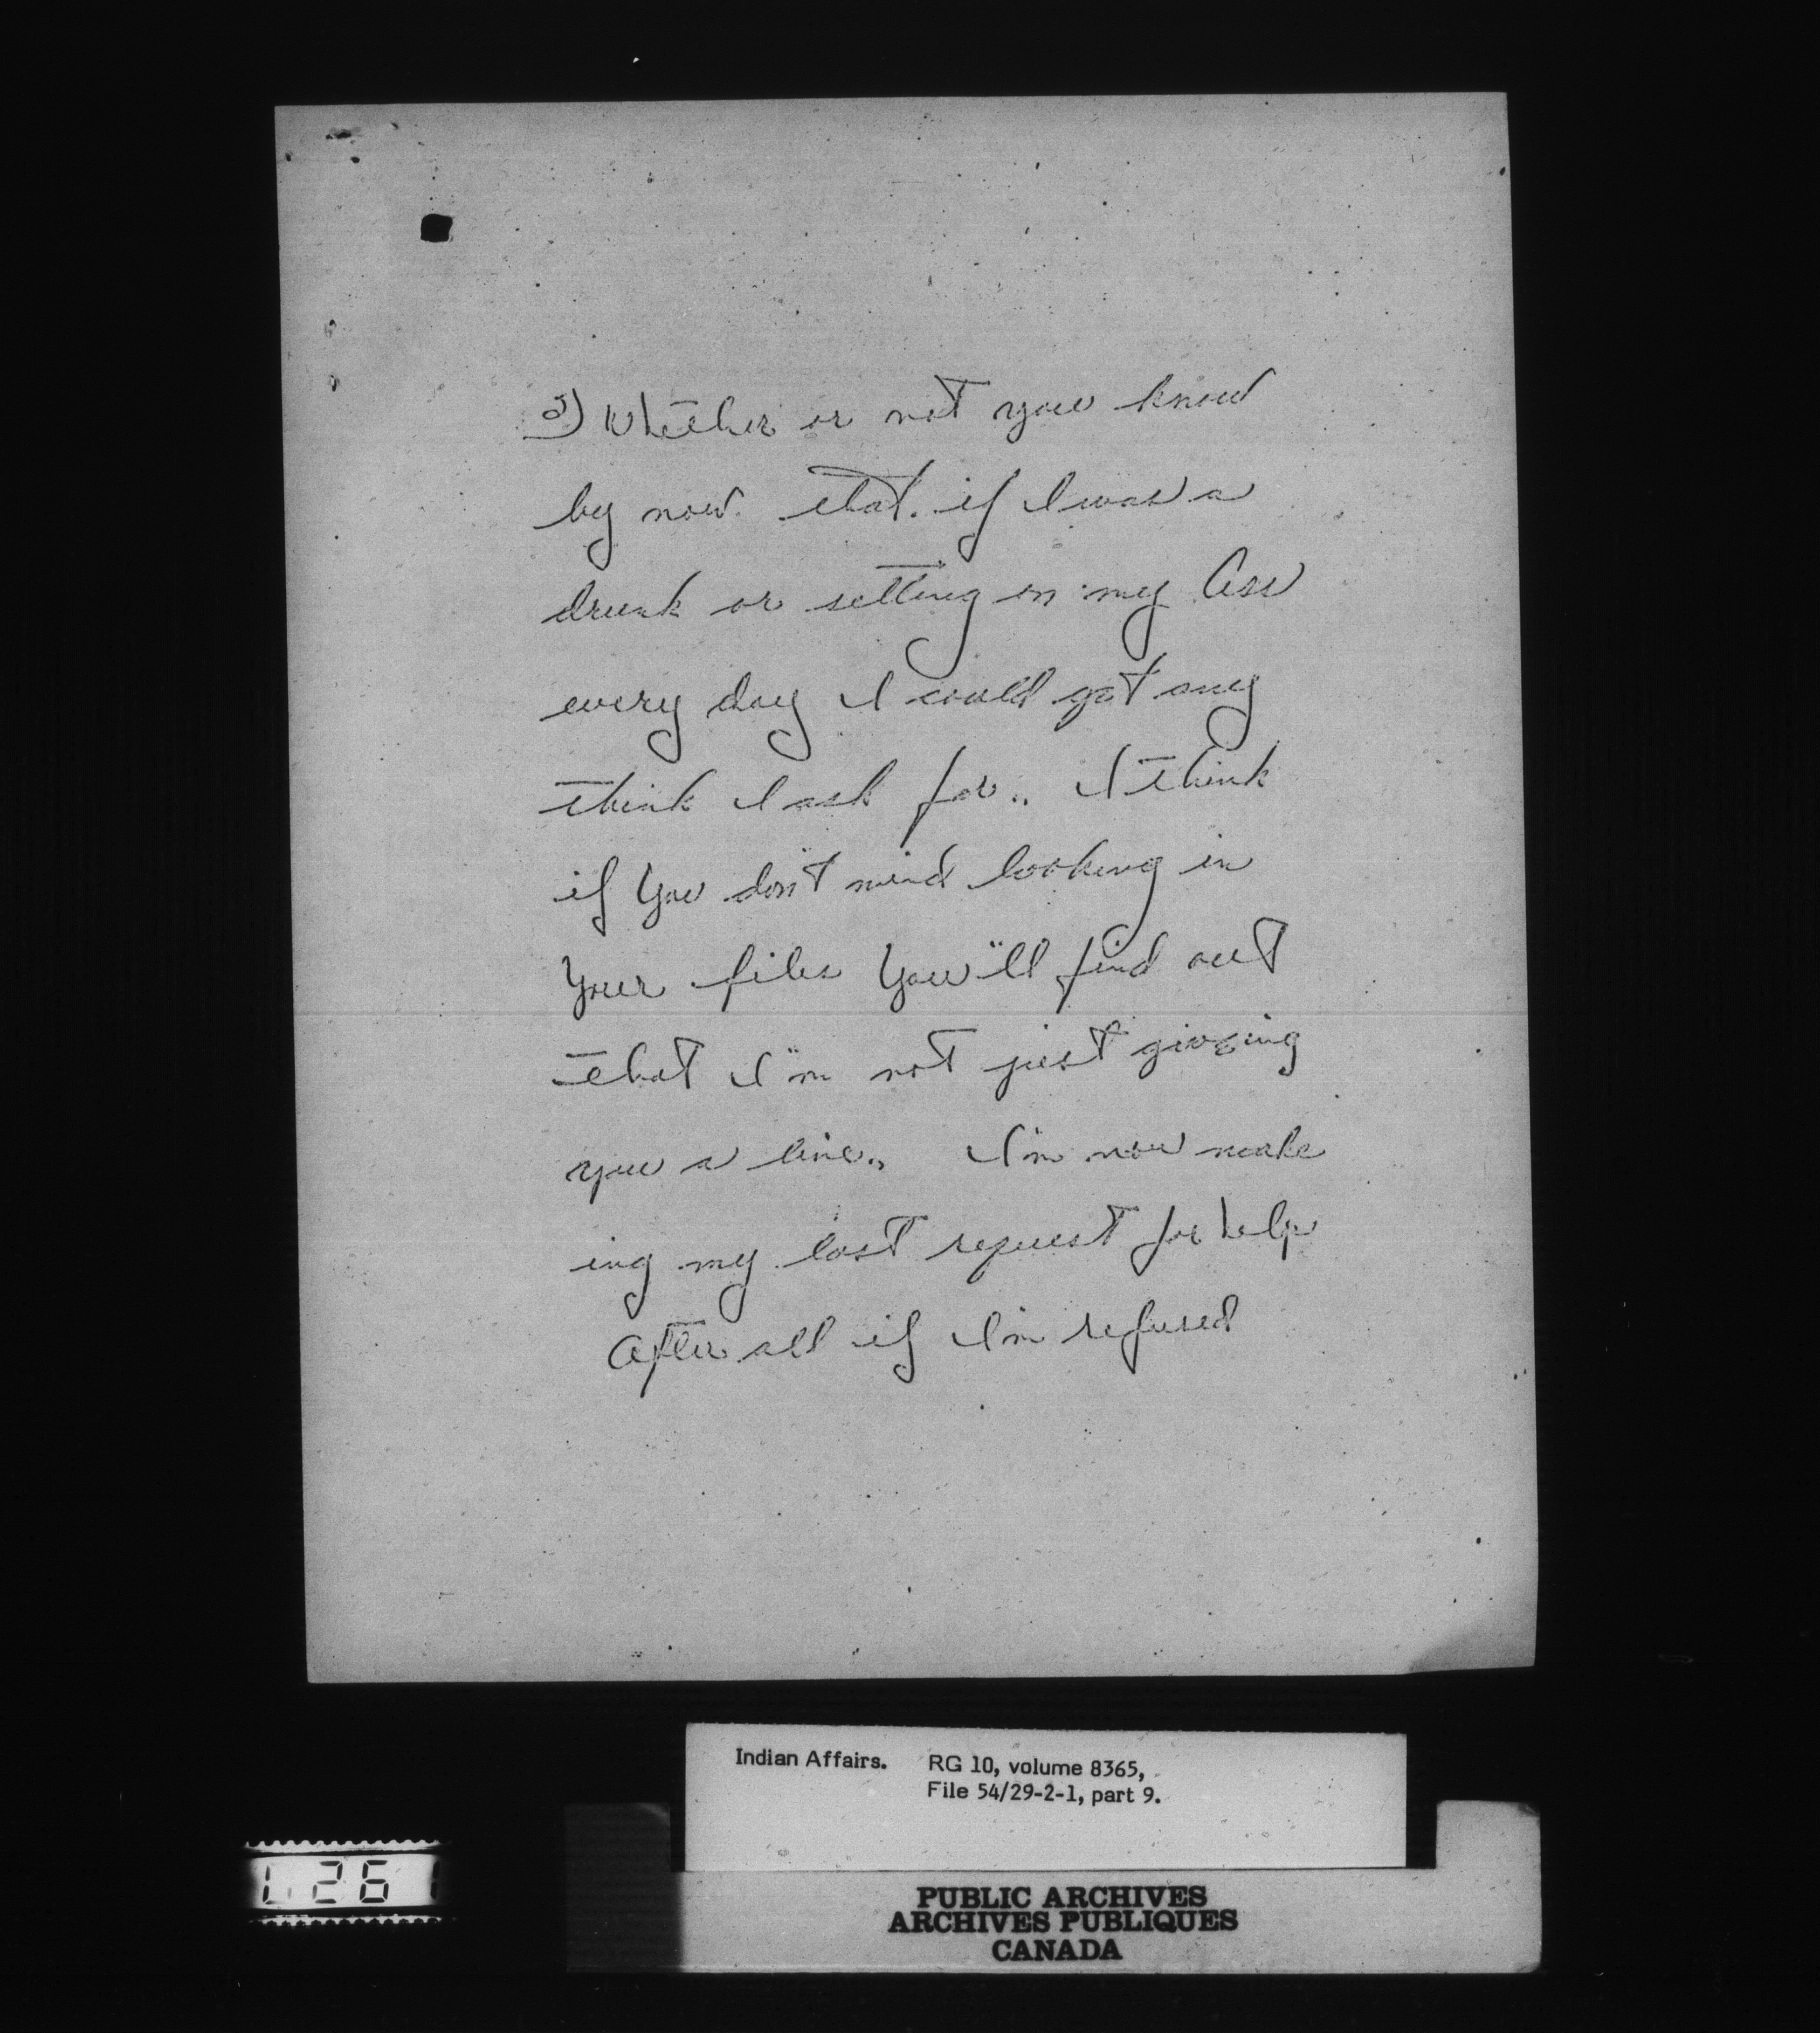 Whether or not you know
by now. that. if I was a
drunk or setting on my Ass
every day I could get any
think I ask for.. I think
if You don"t mind looking in
Your files You"ll find out
that I"m not just giveing
you a line.. I'm now make
ing my last request for help
After all if I'm refused
Indian Affairs. RG 10, volume 8365,
File 54/29-2-1, part 9.
PUBLIC ARCHIVES
ARCHIVES PUBLIQUES
CANADA